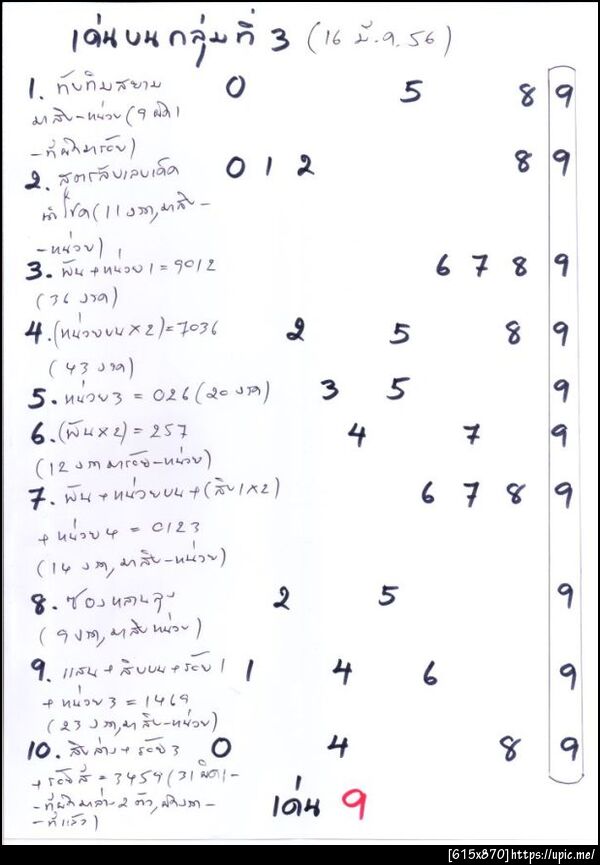 เด่นบนกลุ่มที่ 3 (16 มี.ค.56)
1. ทับทิมสยาม 0 5 8 9
มาสิบ-หน่วย (9 ผิด 1
-ที่ผิดมาร้อย)
2. สูตรลับเลขเด็ด 0 1 2 8 9
นำโชค (11 งวด,มาสิบ-
-หน่วย)
3. พัน+หน่วย1=9012 6 7 8 9
(36 งวด)
4. (หน่วยบน×2)=7036 2 5 8 9
(43 งวด)
5. หน่วย3 = 026 (20 งวด) 3 5 9
6. (พัน×2) = 257 4 7 9
(12 งวดมาร้อย-หน่วย)
7. พัน+หน่วยบน+(สิบ1×2) 6 7 8 9
+หน่วย4 = 0123
(14 งวด,มาสิบ-หน่วย)
8. ซองหลานลุง 2 5 9
(9 งวด,มาสิบหน่วย)
9. แสน+สิบบน+ร้อย1 1 4 6 9
+หน่วย3=1469
(23 งวด,มาสิบ-หน่วย)
10. สิบล่าง+ร้อย3 0 4 8 9
+ร้อย4 = 3459 (31 ผิด1-
-ที่ผิดมาล่าง 2 ตัว,ผิดงวด-
-ที่แล้ว)
เด่น 9
[615x870]https://upic.me/